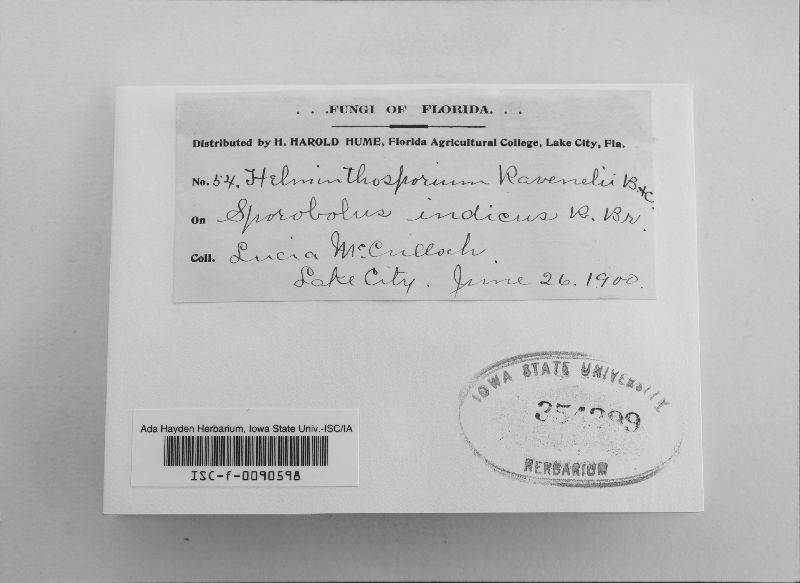 . . .FUNGI OF FLORIDA. . .
Distributed by H. HAROLD HUME, Florida Agricultural College, Lake City, Fla.
No. 54. Helminthosporium Ravenelii B. & C.
On Sporobolus indicus R. Br.
Coll. Lucia McCulloch.
Lake City. June 26. 1900.
IOWA STATE UNIVERSITY
HERBARIUM
Ada Hayden Herbarium, Iowa State Univ.-ISC/IA
ISC-f-0090598